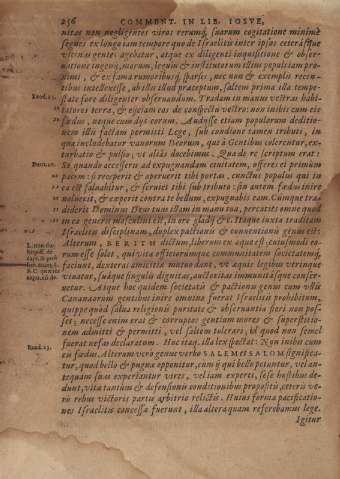 256 COMMENT. IN LIB. IOSVE,
nitas non negligentes viros rerumq́, suarum cogitatione minimè
segnes ex longo iam tempore quo de Israelitis inter ipsos ceterasque
vicinas gentes agebatur, atque ex diligenti inquisitione & obser-
uatione ingenij, morum, legum & institutorum illius populi tam pro-
ximi, & ex fama rumoribusq́ sparsis, nec non & exemplis recen-
tibus intellexisse, ab illis illud præceptum, saltem prima illa tempe-
Exod.23. state fore diligenter obseruandum. Tradam in manus vestras habi-
tatores terræ, & eijciam eos de conspectu vestro: non inibis cum eis
fœdus, neque cum dijs eorum. Audisse etiam populorum deditio-
nem illis factam permitti Lege, sub conditione tamen tributi, in
qua includebatur vanorum Deorum, quos à Gentibus colerentur, ex-
turbatio & pulsio, vt aliàs docebimus. Qua de re scriptum erat:
Deut.20. Si quando accesseris ad expugnandam ciuitatem, offeres ei primùm
pacem: si receperit & aperuerit tibi portas, cunctus populus qui in
ea est saluabitur, & seruiet tibi sub tributo: sin autem fœdus inire
noluerit, & ceperit contra te bellum, expugnabis eam. Cúmque tra-
diderit Dominus Deus tuus illam in manu tua, percuties omne quod
in ea generis masculini est, in ore gladij &c. Itaque iuxta traditam
Israelitis disciplinam, duplex pactionis & conuentionis genus est:
Alterum, BERITH dictum, liberum ex æquo est: cuiusmodi eo-
rum esse solet, qui vitæ officiorumque communitatem societatemq́,
faciunt, dexteras amicitiæ mutuò dant, vt æquis legibus vtrimque
viuatur, suáque singulis dignitas, auctoritas immunitásque conser-
uetur. Atque hoc quidem societatis & pactionis genus cum vllis
Cananæorum gentibus inire omnino fuerat Israelitis prohibitum,
quippe quòd salua religionis puritate & obseruantia fieri non pos-
sit; necesse enim erat & vtriusque gentium mores & superstitio-
nem admitti & permitti, vel saltem tolerari, id quod non semel
fuerat nefas declaratum. Hoc itaq́. illa lex spectat: Non inibis cum
Exod.23. eis fœdus. Alterum verò genus verbo SALEM & SALOM significa-
tur, quod bello & pugnæ opponitur, cùm ij qui bello petuntur, vel an-
tequam suas experiantur vires, vel iam experti, sese hostibus de-
dunt, vita tantùm & defensionis conditionibus propositis, ceteris ve-
rò rebus victoris partis arbitrio relictis. Huius forma pacificatio-
nes Israelitis concessæ fuerunt, illa altera quam referebamus lege.
Igitur